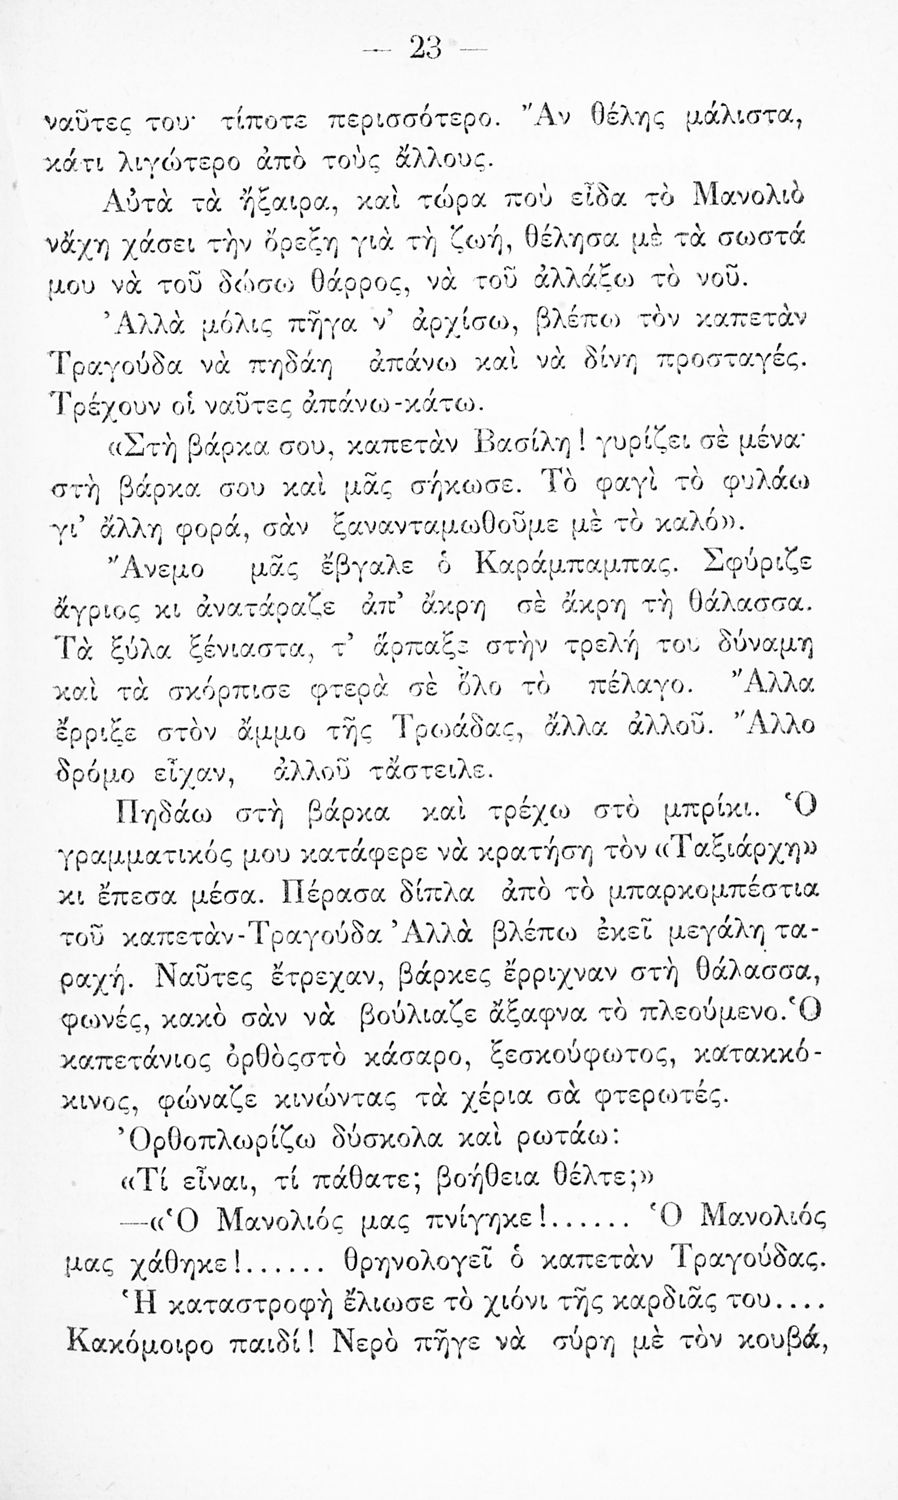 — 23 —
ναῦτες του· τίποτε περισσότερο. Ἂν θέλης μάλιστα,
κάτι λιγώτερο ἀπὸ τοὺς ἄλλους.
Αὐτὰ τὰ ἤξαιρα, καὶ τώρα ποὺ εἶδα τὸ Μανολιὸ
νἄχη χάσει τὴν ὄρεξη γιὰ τὴ ζωή, θέλησα μὲ τὰ σωστά
μου νὰ τοῦ δώσω θάρρος, νὰ τοῦ ἀλλάξω τὸ νοῦ.
Ἀλλὰ μόλις πῆγα ν’ ἀρχίσω, βλέπω τὸν καπετὰν
Τραγούδα νὰ πηδάη ἀπάνω καὶ νὰ δίνη προσταγές.
Τρέχουν οἱ ναῦτες ἀπάνω-κάτω.
«Στὴ βάρκα σου, καπετὰν Βασίλη! γυρίζει σὲ μένα·
στὴ βάρκα σου καὶ μᾶς σήκωσε. Τὸ φαγὶ τὸ φυλάω
γι’ ἄλλη φορά, σὰν ξαναντάμωθοῦμε μὲ τὸ καλό».
Ἄνεμο μᾶς ἔβγαλε ὁ Καράμπαμπας. Σφύριζε
ἄγριος κι ἀνατάραζε ἀπ’ ἄκρη σὲ ἄκρη τὴ θάλασσα.
Τὰ ξύλα ξένιαστα, τ’ ἅρπαξε στὴν τρελή του δύναμη
καὶ τὰ σκόρπισε φτερὰ σὲ ὅλο τὸ πέλαγο. Ἄλλα
ἔρριξε στὸν ἄμμο τῆς Τρωάδας, ἄλλα ἀλλοῦ. Ἄλλο
δρόμο εἶχαν, ἀλλοῦ τἄστειλε.
Πηδάω στὴ βάρκα καὶ τρέχω στὸ μπρίκι. Ὁ
γραμματικός μου κατάφερε νὰ κρατήση τὸν «Ταξιάρχη»
κι ἔπεσα μέσα. Πέρασα δίπλα ἀπὸ τὸ μπαρκομπέστια
τοῦ καπετὰν-Τραγούδα Ἀλλὰ βλέπω ἐκεῖ μεγάλη τα-
ραχή. Ναῦτες ἔτρεχαν, βάρκες ἔρριχναν στὴ θάλασσα,
φωνές, κακὸ σὰν νὰ βούλιαζε ἄξαφνα τὸ πλεούμενο. Ὁ
καπετάνιος ὀρθὸςστὸ κάσαρο, ξεσκούφωτος, κατακκό-
κινος, φώναζε κινώντας τὰ χέρια σὰ φτερωτές.
Ὀρθοπλωρίζω δύσκολα καὶ ρωτάω:
«Τί εἶναι, τί πάθατε; βοήθεια θέλτε;»
—«Ὁ Μανολιός μας πνίγηκε!...... Ὁ Μανολιός
μας χάθηκε!...... θρηνολογεῖ ὁ καπετὰν Τραγούδας.
Ἡ καταστροφὴ ἔλιωσε τὸ χιόνι τῆς καρδιᾶς του....
Κακόμοιρο παιδί! Νερὸ πῆγε νὰ σύρη μὲ τὸν κουβά,